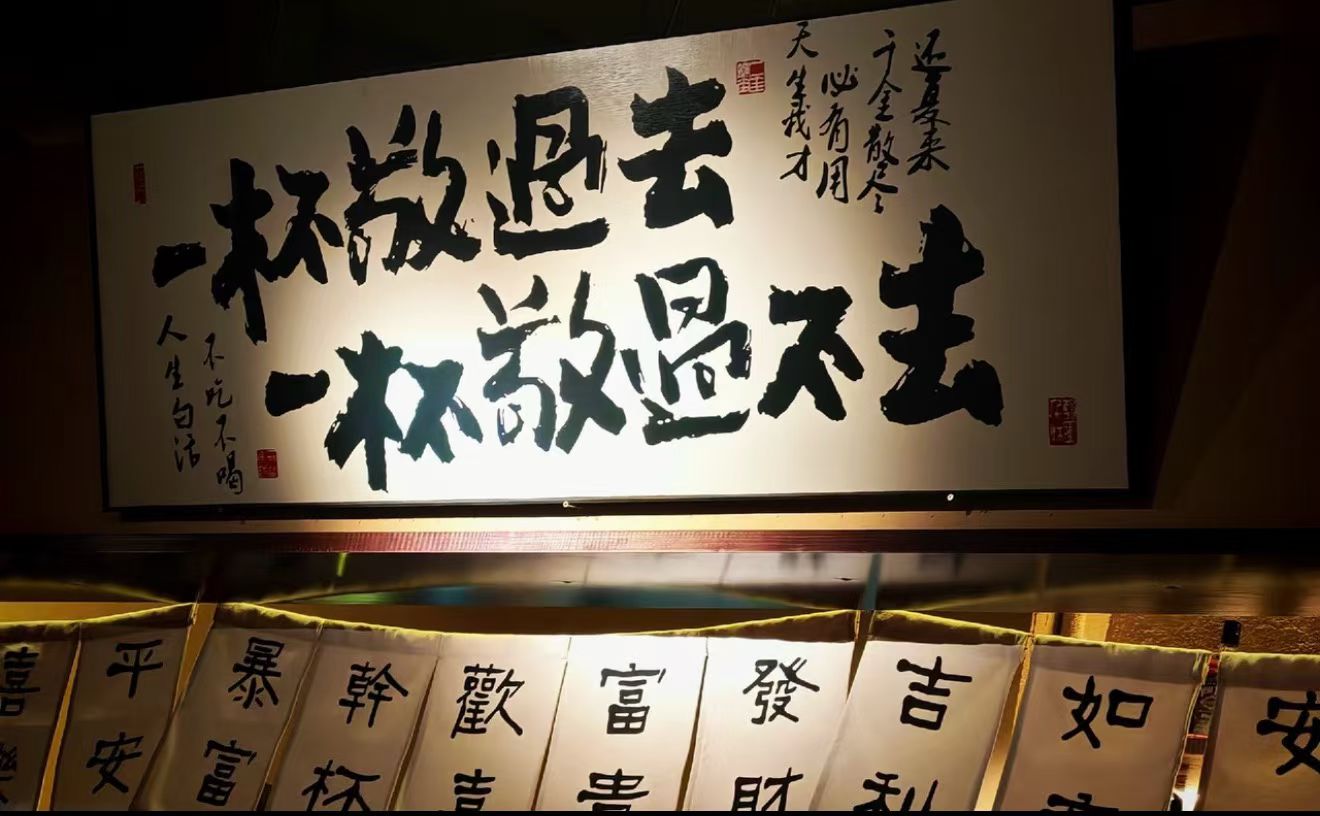 一杯敬過去
一杯敬過不去
天生我才
必有用
千金散尽
还复来
不吃不喝
人生白活
喜樂
平安
暴富
幹杯
歡喜
富貴
發財
吉利
如意
安